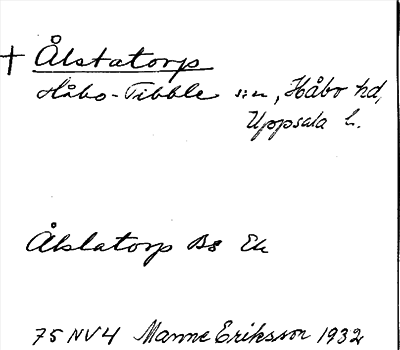 † Ålstatorp
Håbo-Tibble s:n, Håbo hd,
Uppsala l.
Ålslatorp Bs Ek
75 NV4 Manne Eriksson 1932